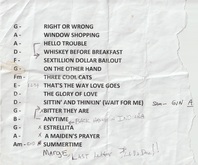 G - RIGHT OR WRONG
A - WINDOW SHOPPING
A - HELLO TROUBLE
D - WHISKEY BEFORE BREAKFAST
F - SEXTILLION DOLLAR BAILOUT
G - ON THE OTHER HAND
Fm - THREE COOL CATS
E - THAT'S THE WAY LOVE GOES
D - THE GLORY OF LOVE
D - SITTIN' AND THINKIN' (WAIT FOR ME)
G - BITTER THEY ARE
B - ANYTIME
G - ESTRELLITA
A - A MAIDEN'S PRAYER
Am - SUMMERTIME
Marge Last Letter